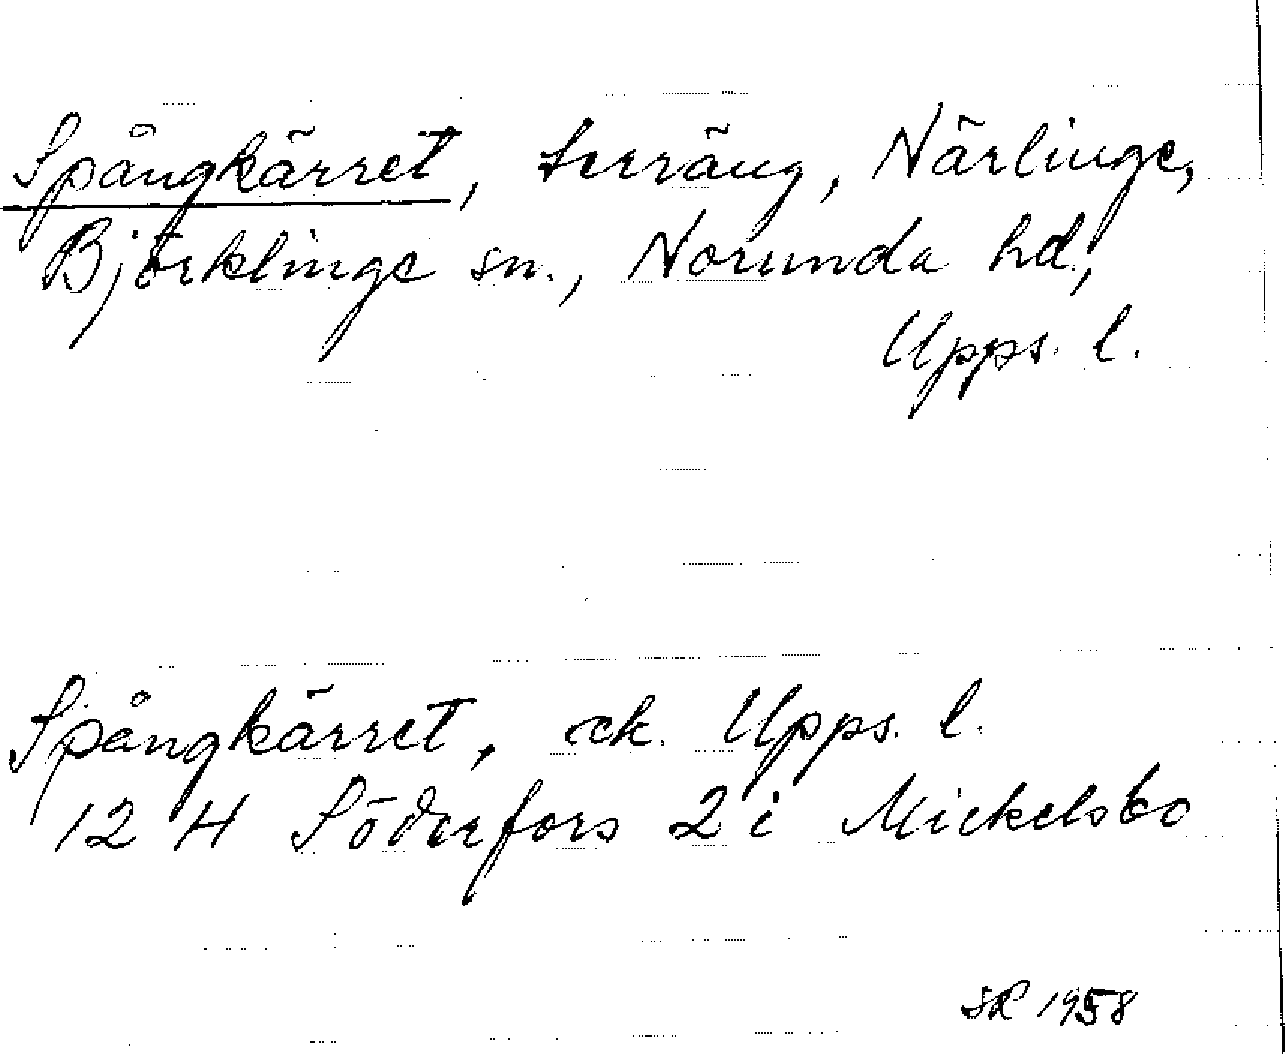 Spångkärret, terräng, Närlinge,
Björklinge sn., Norunda hd,
Upps. l.
Spångkärret, ek. Upps. l.
12 H Söderfors 2 i Mickelsbo
SR 1958